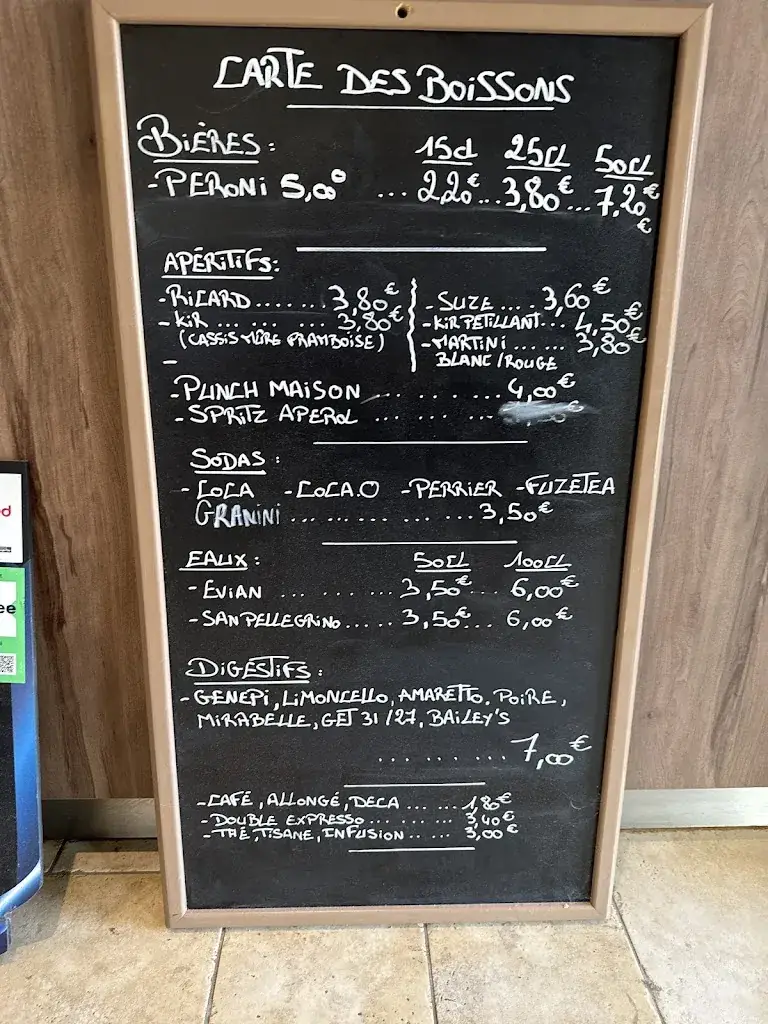 CARTE DES BOISSONS
BIÈRES : 15cl 25cl 50cl
- PERONI 5,00° ... 2,20€ ... 3,80€ ... 7,20€
€
APÉRITIFS :
- RICARD ....... 3,80€
- KIR ... ... ... 3,80€
(CASSIS MÛRE FRAMBOISE)
-
- SUZE .... 3,60€
- KIR PETILLANT... 4,50€
- MARTINI ...... 3,80€
BLANC / ROUGE
- PUNCH MAISON ....... 4,00€
- SPRITZ APEROL ........ €
SODAS :
- COCA - COCA.O - PERRIER - FUZETEA
GRANINI ... ... ... ... 3,50€
EAUX : 50CL 100CL
- EVIAN ... ... ... 3,50€ ... 6,00€
- SAN PELLEGRINO ..... 3,50€ ... 6,00€
DIGÉSTIFS :
- GENEPI, LIMONCELLO, AMARETTO, POIRE,
MIRABELLE, GET 31 / 27, BAILEY'S
... ... ... 7,00€
- CAFÉ, ALLONGÉ, DECA ... ... 1,80€
- DOUBLE EXPRESSO ... ... ... 3,40€
- THÉ, TISANE, INFUSION ... .. 3,00€